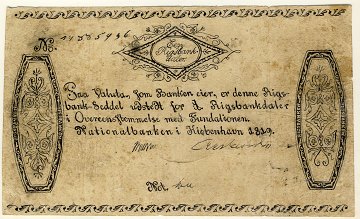 No.
Een
Rigsbank
daler
Paa Valuta, som Banken eier, er denne Rigs-
bank-Seddel udstedt for 1 Rigsbankdaler
i Overeensstemmelse med Fundationen.
Nationalbanken i Kiøbenhavn 1819.
Not.